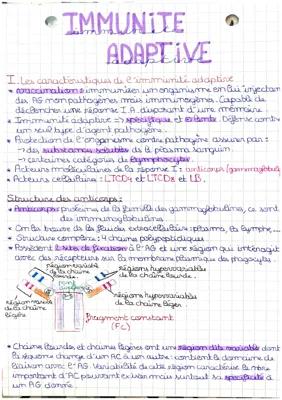 IMMUNITE
ADAPTIVE
I. Les caractéristiques de l'immunité adaptive
* vaccination: immuniser un organisme en lui injectant
des AG non pathogènes mais immunogènes. Capable de
déclencher une réponse I.A. disposant d'une mémoire
* Immunité adaptive => spécifique et Défense contre
un seul type d'agent pathogène.
* Protection de l'organisme contre pathogène assurer par:
-> des substances solubles de la plasma sanguin
-> certaines catégories de lymphocytes.
* Acteurs moléculaires de la réponse I: anticorps (gammaglobul
* Acteurs cellulaire: LTCD4 et LTCD8 et LB.
Structure des anticorps:
* Anticorps: protéines de la famille des gammaglobulines, ce sont
des immunoglobulines.
* On les trouve ds les fluides extracellulaire: plasma, la lymphe...
* Structure complexe: 4 chaîne polypeptidiques
* Possèdent 2 sites de fixation à l'AG et une région qui interagit
avec des récepteurs sur la membrane plasmique des phagocytes
région variable
de la chaîne
lourde
régions hypervariables
de la chaîne lourde.
région variable
de la chaîne
légère
régions hypervariables
de la chaîne léger
Fragment constant
(Fc)
* Chaînes lourdes et chaînes légères ont une région dite variable dont
la séquence change d'un AC à un autre: contient le domaine de
liaison avec l'AG. Variabilité de cette région caractérise le nbre
important d'AC pouvant exister mais surtout sa spécificité à
un AG donné.